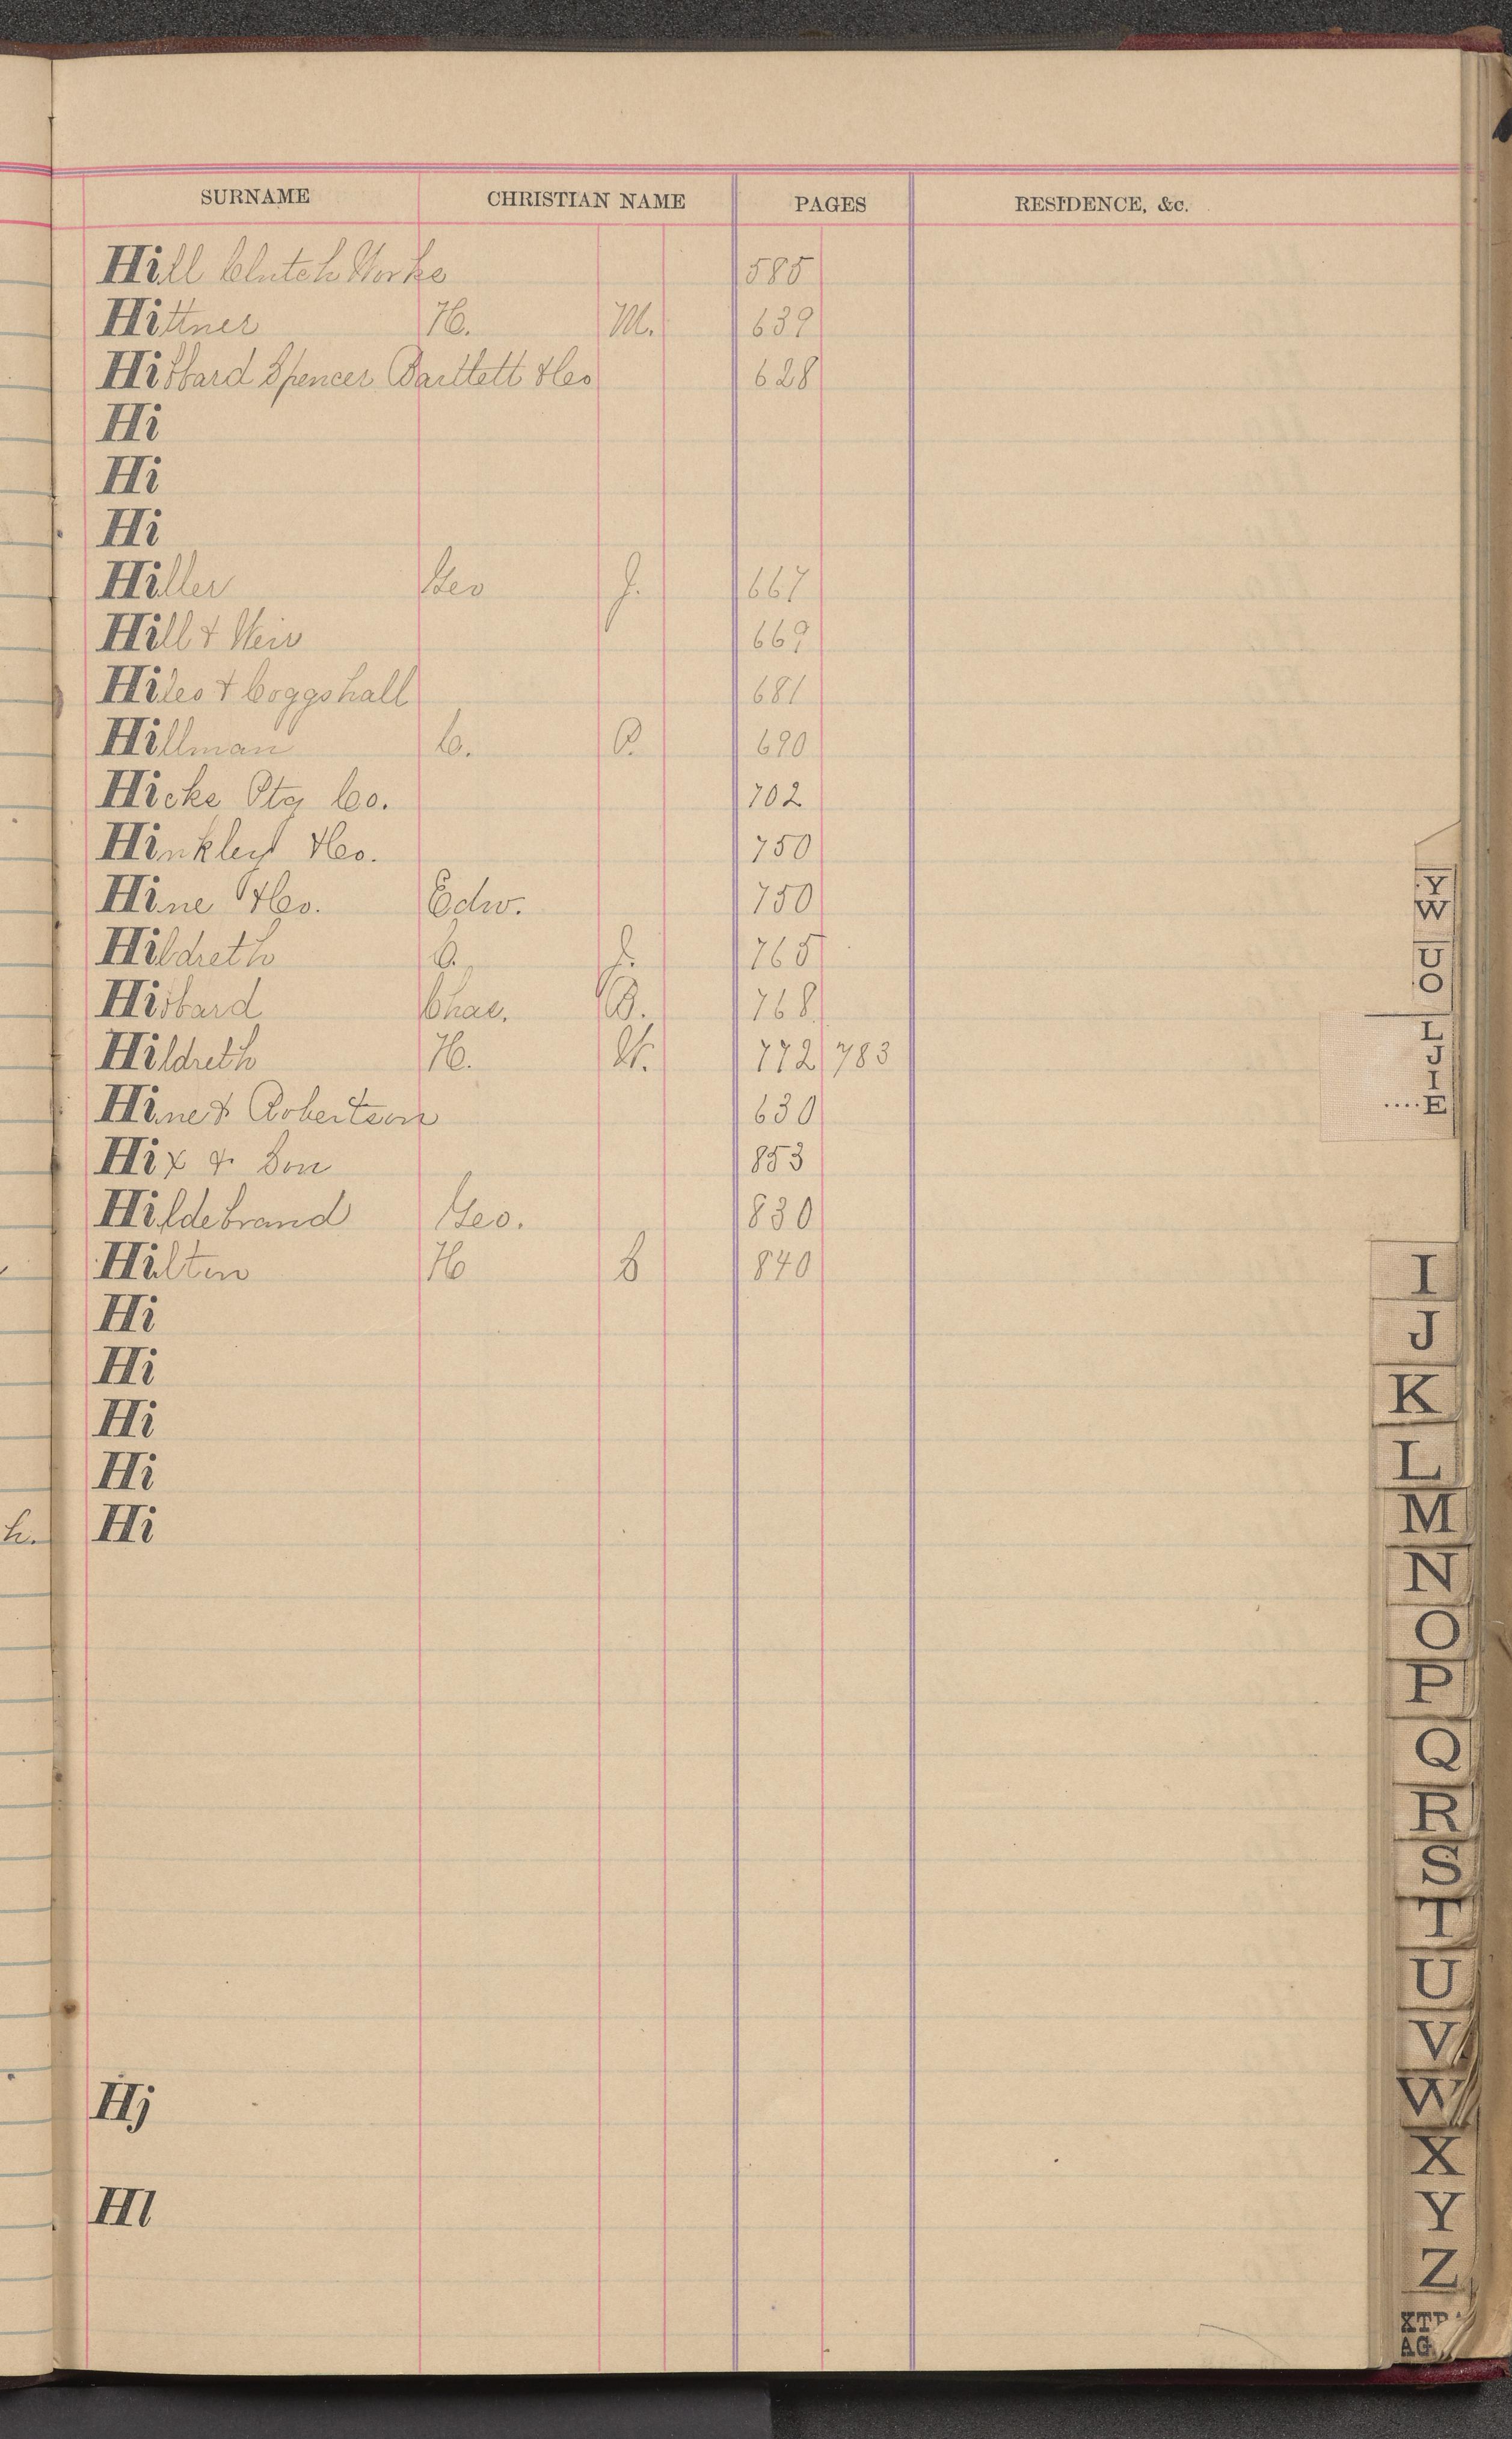 SURNAME CHRISTIAN NAME PAGES RESIDENCE, &c.
Hill Clutch Works 585
Hittner H. M. 639
Hibbard Spencer Bartlett & Co 628
Hi
Hi
Hi
Hiller Geo J. 667
Hill & Weir 669
Hiles & Coggshall 681
Hillman C. P. 690
Hicks Ptg Co. 702
Hinkley & Co. 750
Hine & Co. Edw. 750
Hildreth C. J. 765
Hibbard Chas. B. 768
Hildreth H. W. 772 783
Hine & Robertson 630
Hix & Son 853
Hildebrand Geo. 830
Hilton H 840
Hi
Hi
Hi
Hi
h. Hi
Hj
Hl
Y
W
U
O
L
J
I
....E
I
J
K
L
M
N
O
P
Q
R
S
T
U
V
W
X
Y
Z